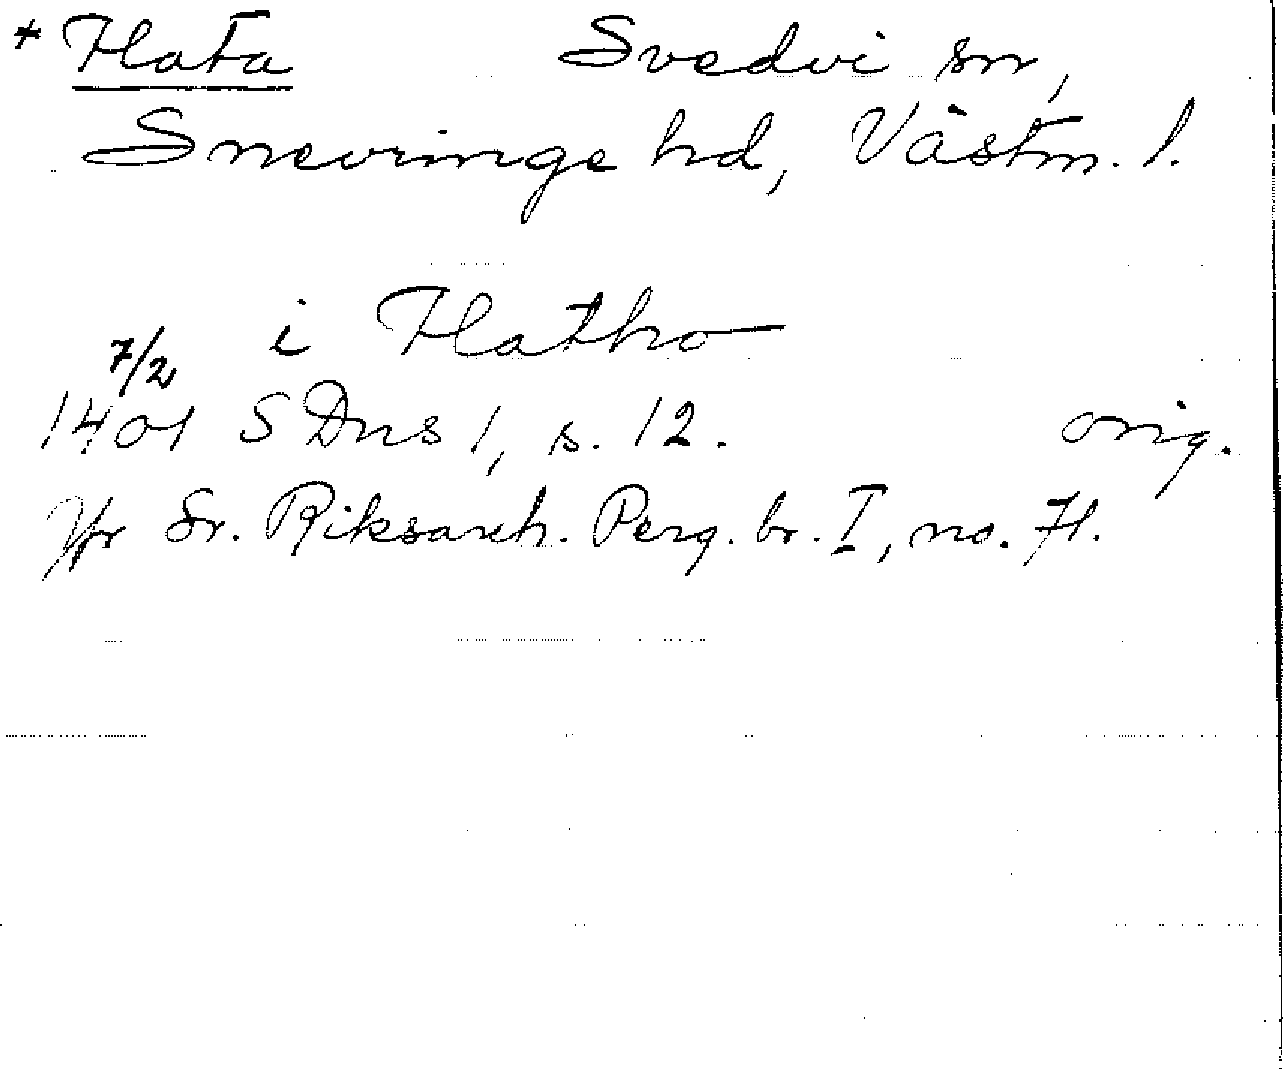 * Flata Svedvi sn,
Snevringe hd, Västm. l.
i Flatho
7/2
1401 SDns 1, s. 12. orig.
Jfr Sv. Riksarch. Perg. br. I, no. 71.